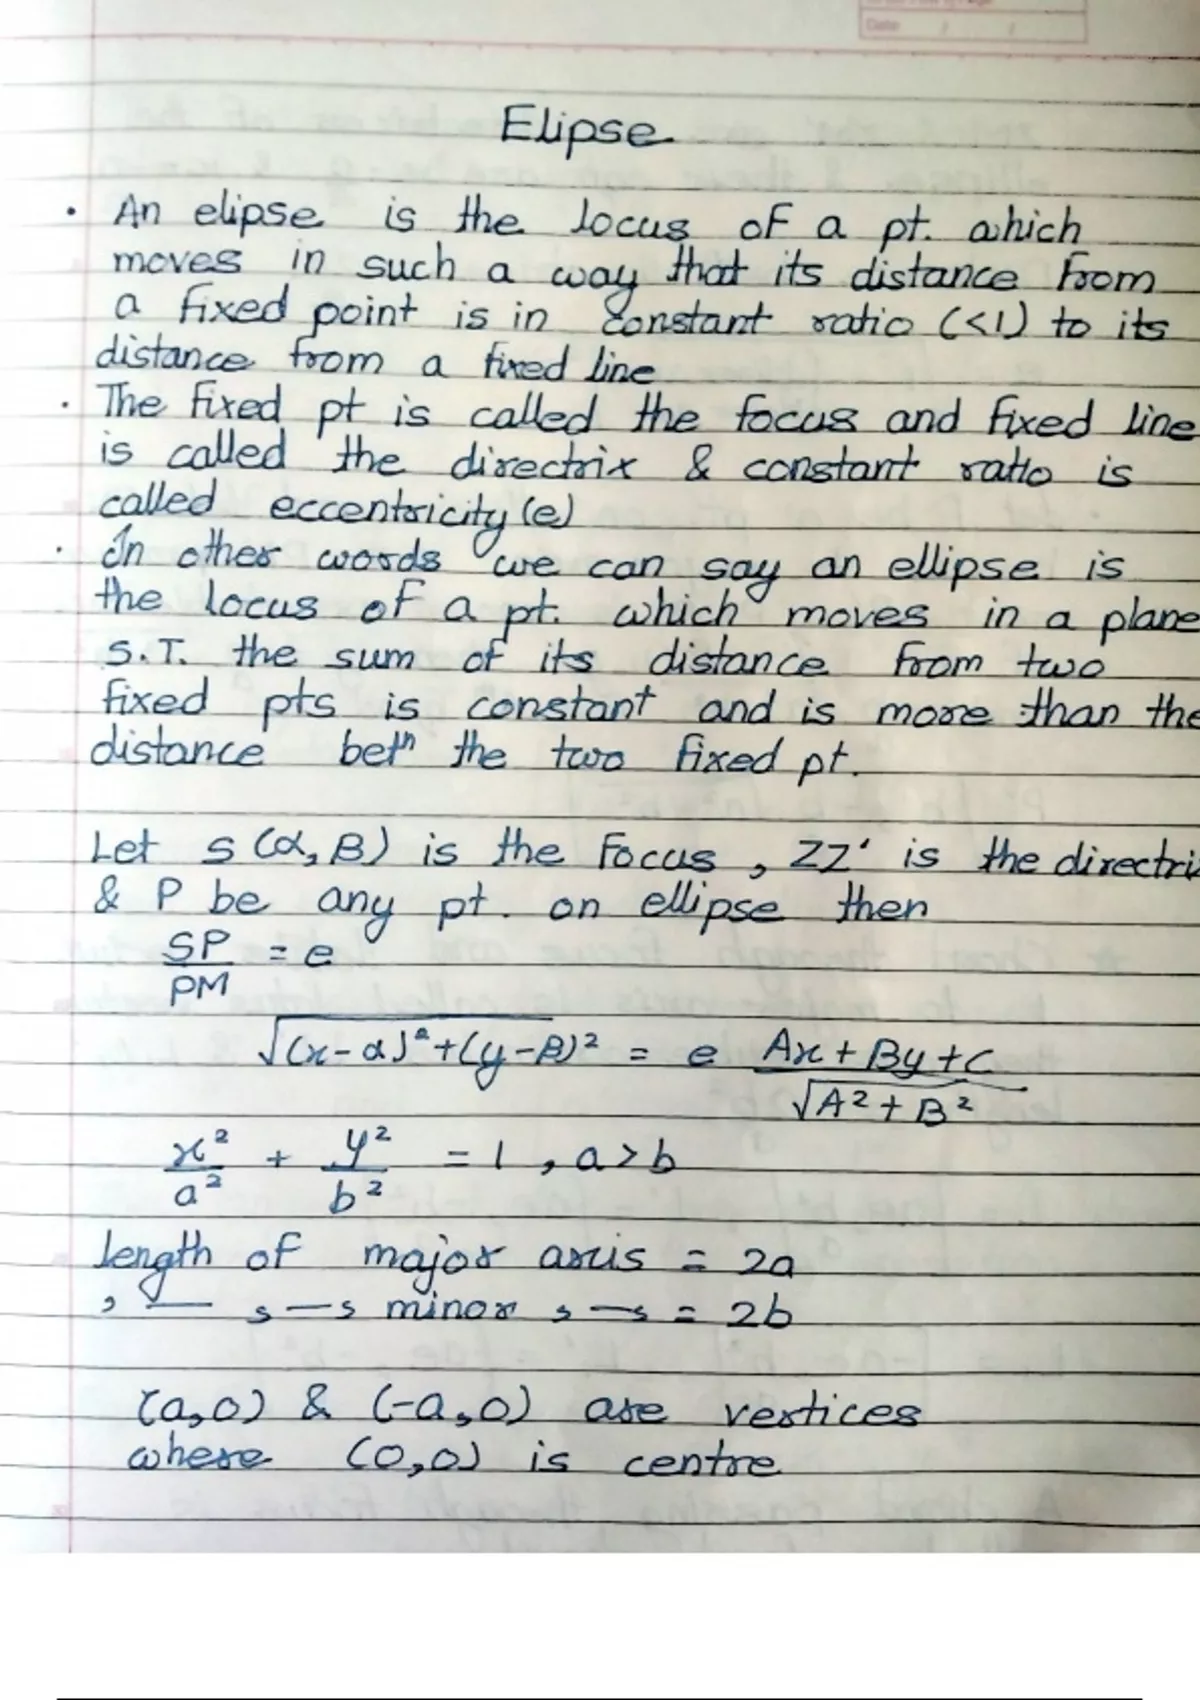 Date / /
Elipse
• An elipse is the locus of a pt. which
moves in such a way that its distance from
a fixed point is in constant ratio (<1) to its
distance from a fixed line
• The fixed pt is called the focus and fixed line
is called the directrix & constant ratio is
called eccentricity (e)
• In other words we can say an ellipse is
the locus of a pt. which moves in a plane
S.T. the sum of its distance from two
fixed pts is constant and is more than the
distance betn the two fixed pt.
Let S (α, β) is the focus, ZZ' is the directrix
& P be any pt. on ellipse then
SP/PM = e
√(x-α)²+(y-β)² = e Ax + By + C / √A²+B²
x²/a² + y²/b² = 1, a>b
length of major axis = 2a
, — s—s minor s—s = 2b
(a,0) & (-a,0) are vertices
where (0,0) is centre